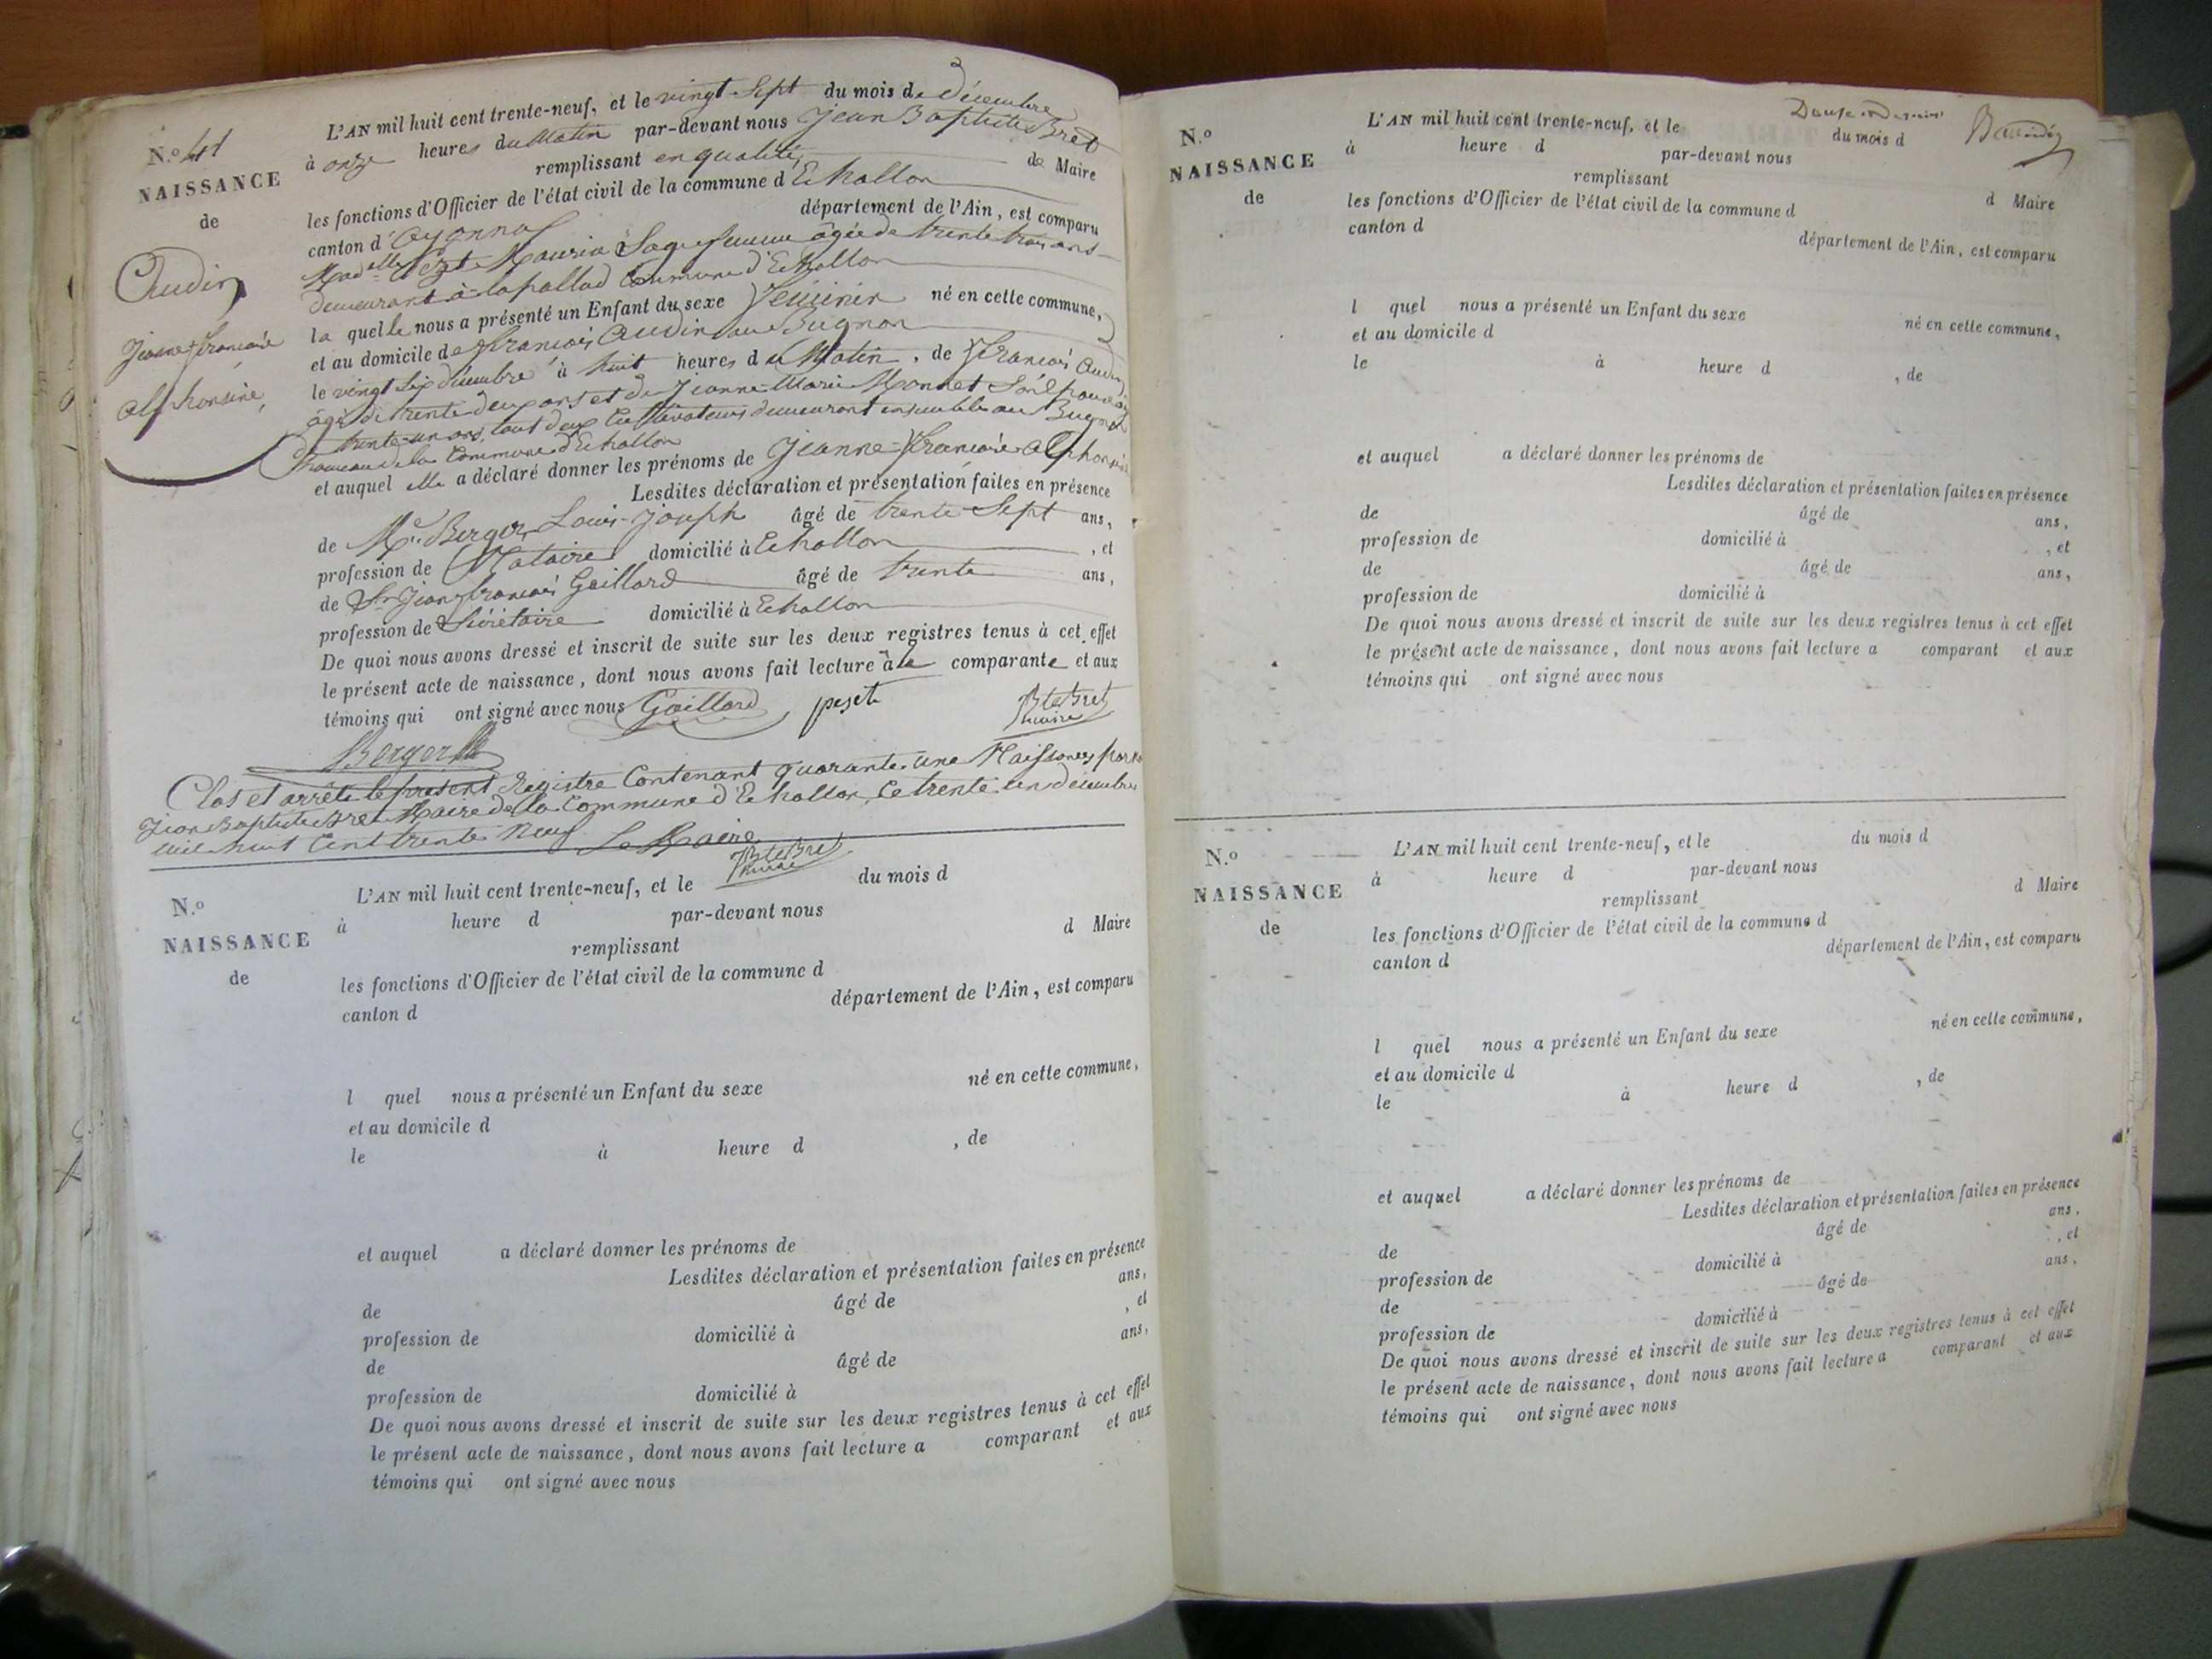 N.o 41
NAISSANCE
de
Audin
Jeanne françoise
alphonsine,
L'AN mil huit cent trente-neuf, et le vingt Sept du mois de décembre
à onze heures du Matin par-devant nous Jean Baptiste Bret
remplissant en qualité de Maire
les fonctions d'Officier de l'état civil de la commune d Echallon
canton d'Oyonnas département de l'Ain, est comparu
Mad.elle Sage femme âgée de trente trois ans
demeurant à lapallud Commune d'Echallon
la quelle nous a présenté un Enfant du sexe féminin né en cette commune,
et au domicile de françois Audin au Bugnon
le vingt Six décembre à huit heures du Matin, de françois Audin
âgé de trente deux ans et de Jeanne-Marie Monnet Son épouse
trente-un ans, tout deux Cultivateurs demeurant ensemble au Bugnon
hameau de la Commune d'Echallon
et auquel elle a déclaré donner les prénoms de Jeanne-françoise alphonsine
Lesdites déclaration et présentation faites en présence
de M.e Berger Louis-Joseph âgé de trente Sept ans,
profession de Notaire domicilié à Echallon , et
de Sr Jean françois Gaillard âgé de trente ans,
profession de Sécrétaire domicilié à Echallon
De quoi nous avons dressé et inscrit de suite sur les deux registres tenus à cet effet
le présent acte de naissance, dont nous avons fait lecture à la comparante et aux
témoins qui ont signé avec nous Gaillard peset JBte Bret
maire
Berger
Clos et arrêté le présent Registre Contenant quarante une Naissances par
Jean Baptiste Bret Maire de la Commune d'Echallon, Ce trente un décembre
mil huit Cent trente Neuf Le Maire
JBte Bret
maire
N.o
NAISSANCE
de
L'AN mil huit cent trente-neuf, et le du mois d
à heure d par-devant nous
remplissant d Maire
les fonctions d'Officier de l'état civil de la commune d
canton d département de l'Ain, est comparu
l quel nous a présenté un Enfant du sexe né en cette commune,
et au domicile d
le à heure d , de
et auquel a déclaré donner les prénoms de
Lesdites déclaration et présentation faites en présence
de âgé de ans,
profession de domicilié à , et
de âgé de ans,
profession de domicilié à
De quoi nous avons dressé et inscrit de suite sur les deux registres tenus à cet effet
le présent acte de naissance, dont nous avons fait lecture a comparant et aux
témoins qui ont signé avec nous
N.o
NAISSANCE
de
L'AN mil huit cent trente-neuf, et le du mois d
à heure d par-devant nous
remplissant d Maire
les fonctions d'Officier de l'état civil de la commune d
canton d département de l'Ain, est comparu
l quel nous a présenté un Enfant du sexe né en cette commune,
et au domicile d
le à heure d , de
et auquel a déclaré donner les prénoms de
Lesdites déclaration et présentation faites en présence
de âgé de ans,
profession de domicilié à , et
de âgé de ans,
profession de domicilié à
De quoi nous avons dressé et inscrit de suite sur les deux registres tenus à cet effet
le présent acte de naissance, dont nous avons fait lecture a comparant et aux
témoins qui ont signé avec nous
N.o
NAISSANCE
de
L'AN mil huit cent trente-neuf, et le du mois d
à heure d par-devant nous
remplissant d Maire
les fonctions d'Officier de l'état civil de la commune d
canton d département de l'Ain, est comparu
l quel nous a présenté un Enfant du sexe né en cette commune,
et au domicile d
le à heure d , de
et auquel a déclaré donner les prénoms de
Lesdites déclaration et présentation faites en présence
de âgé de ans,
profession de domicilié à , et
de âgé de ans,
profession de domicilié à
De quoi nous avons dressé et inscrit de suite sur les deux registres tenus à cet effet
le présent acte de naissance, dont nous avons fait lecture a comparant et aux
témoins qui ont signé avec nous